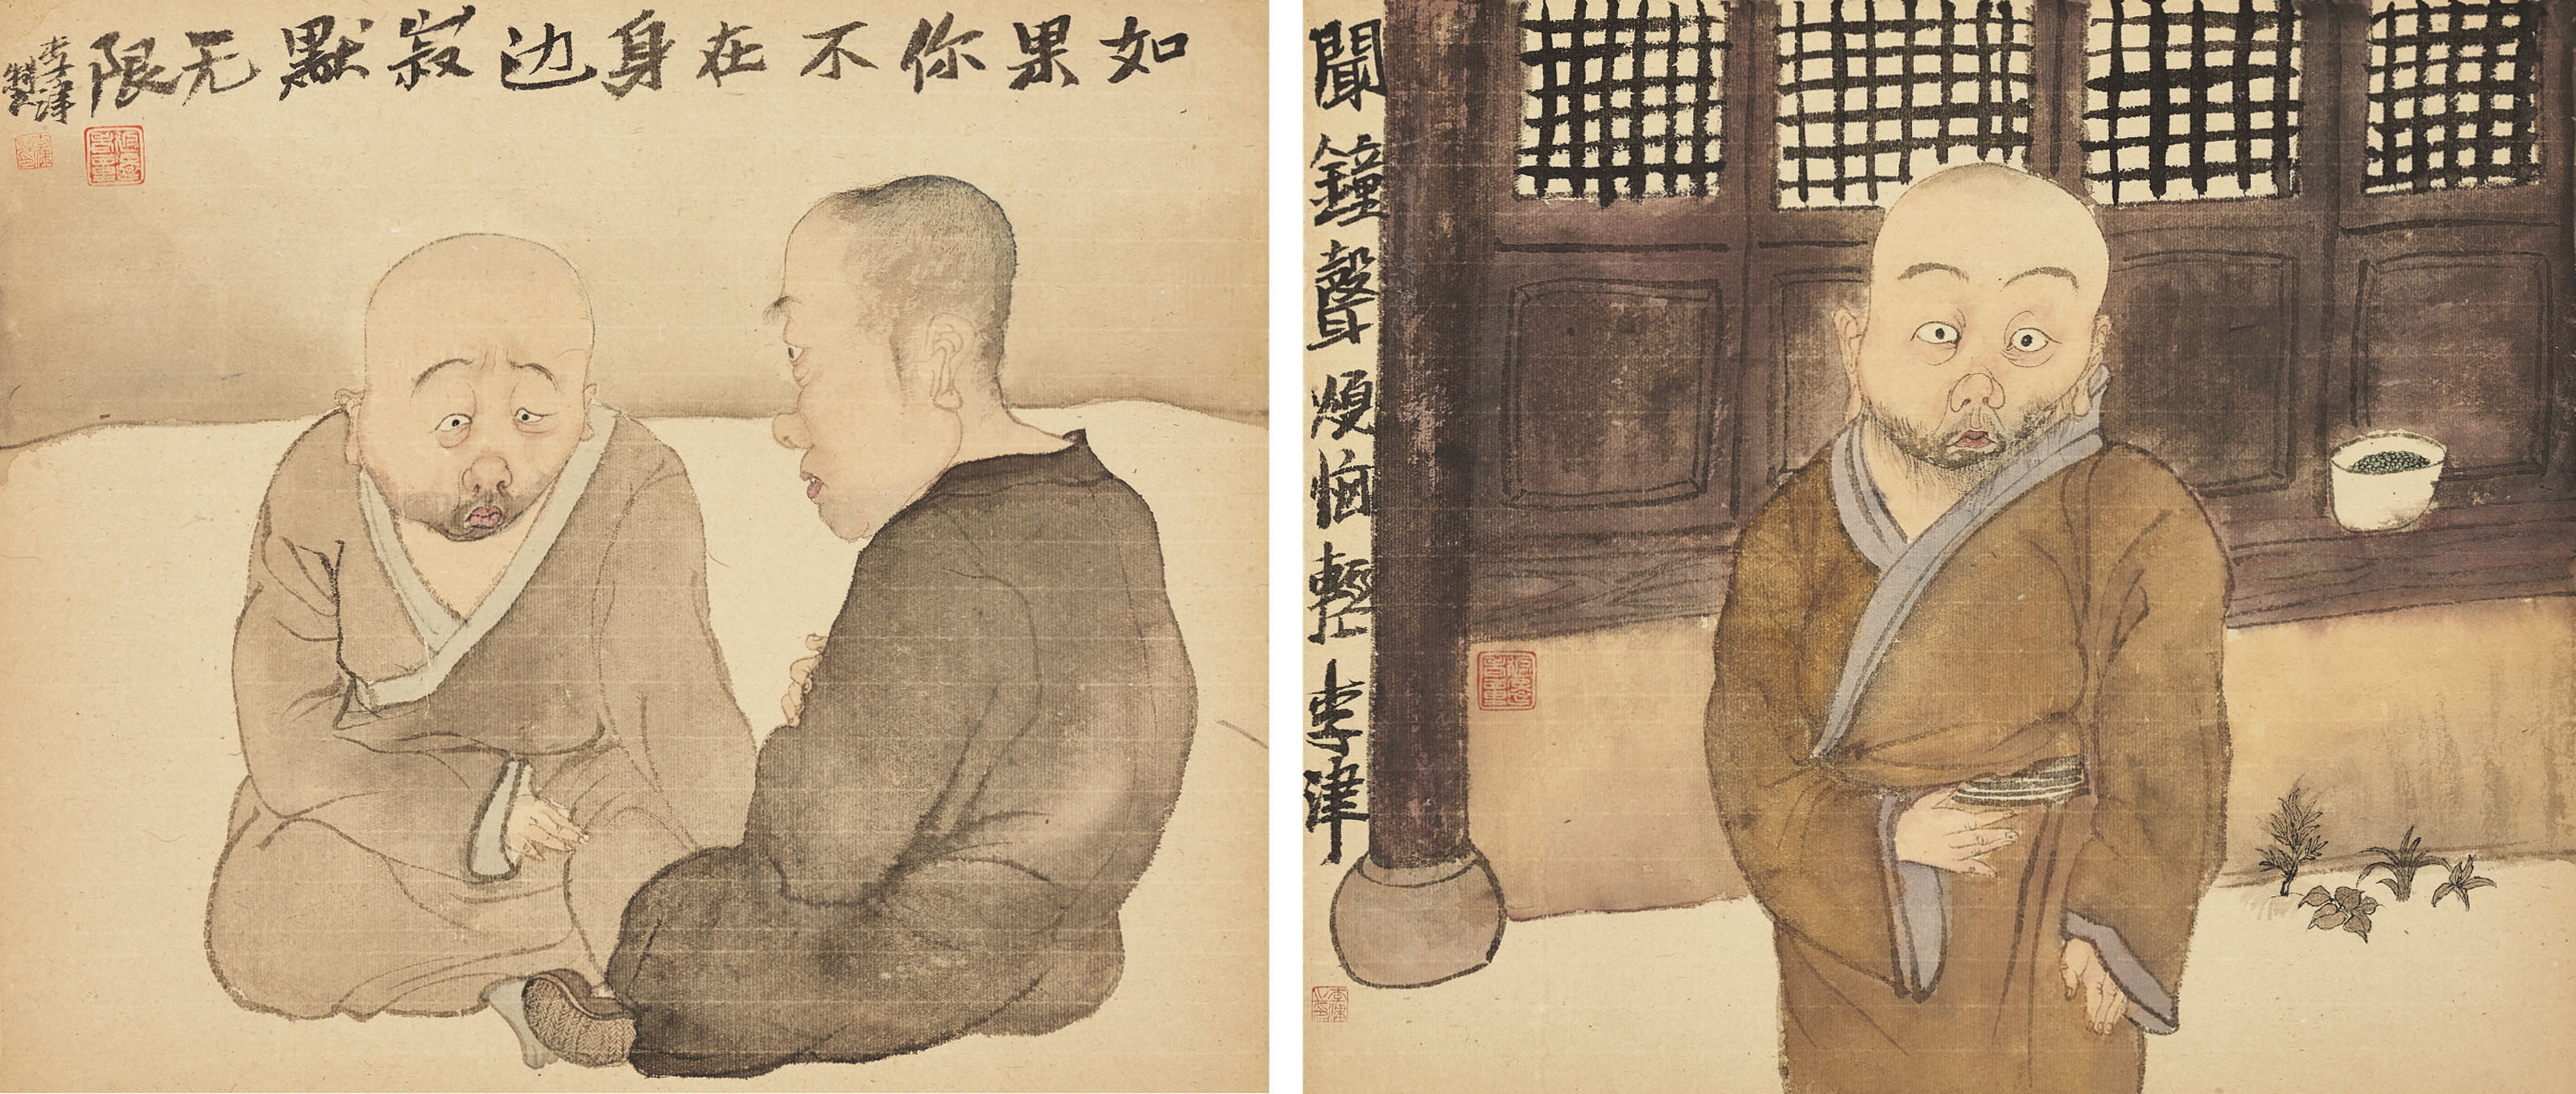 如果你不在身边寂默无限
李津制
聞鐘聲煩惱輕李津